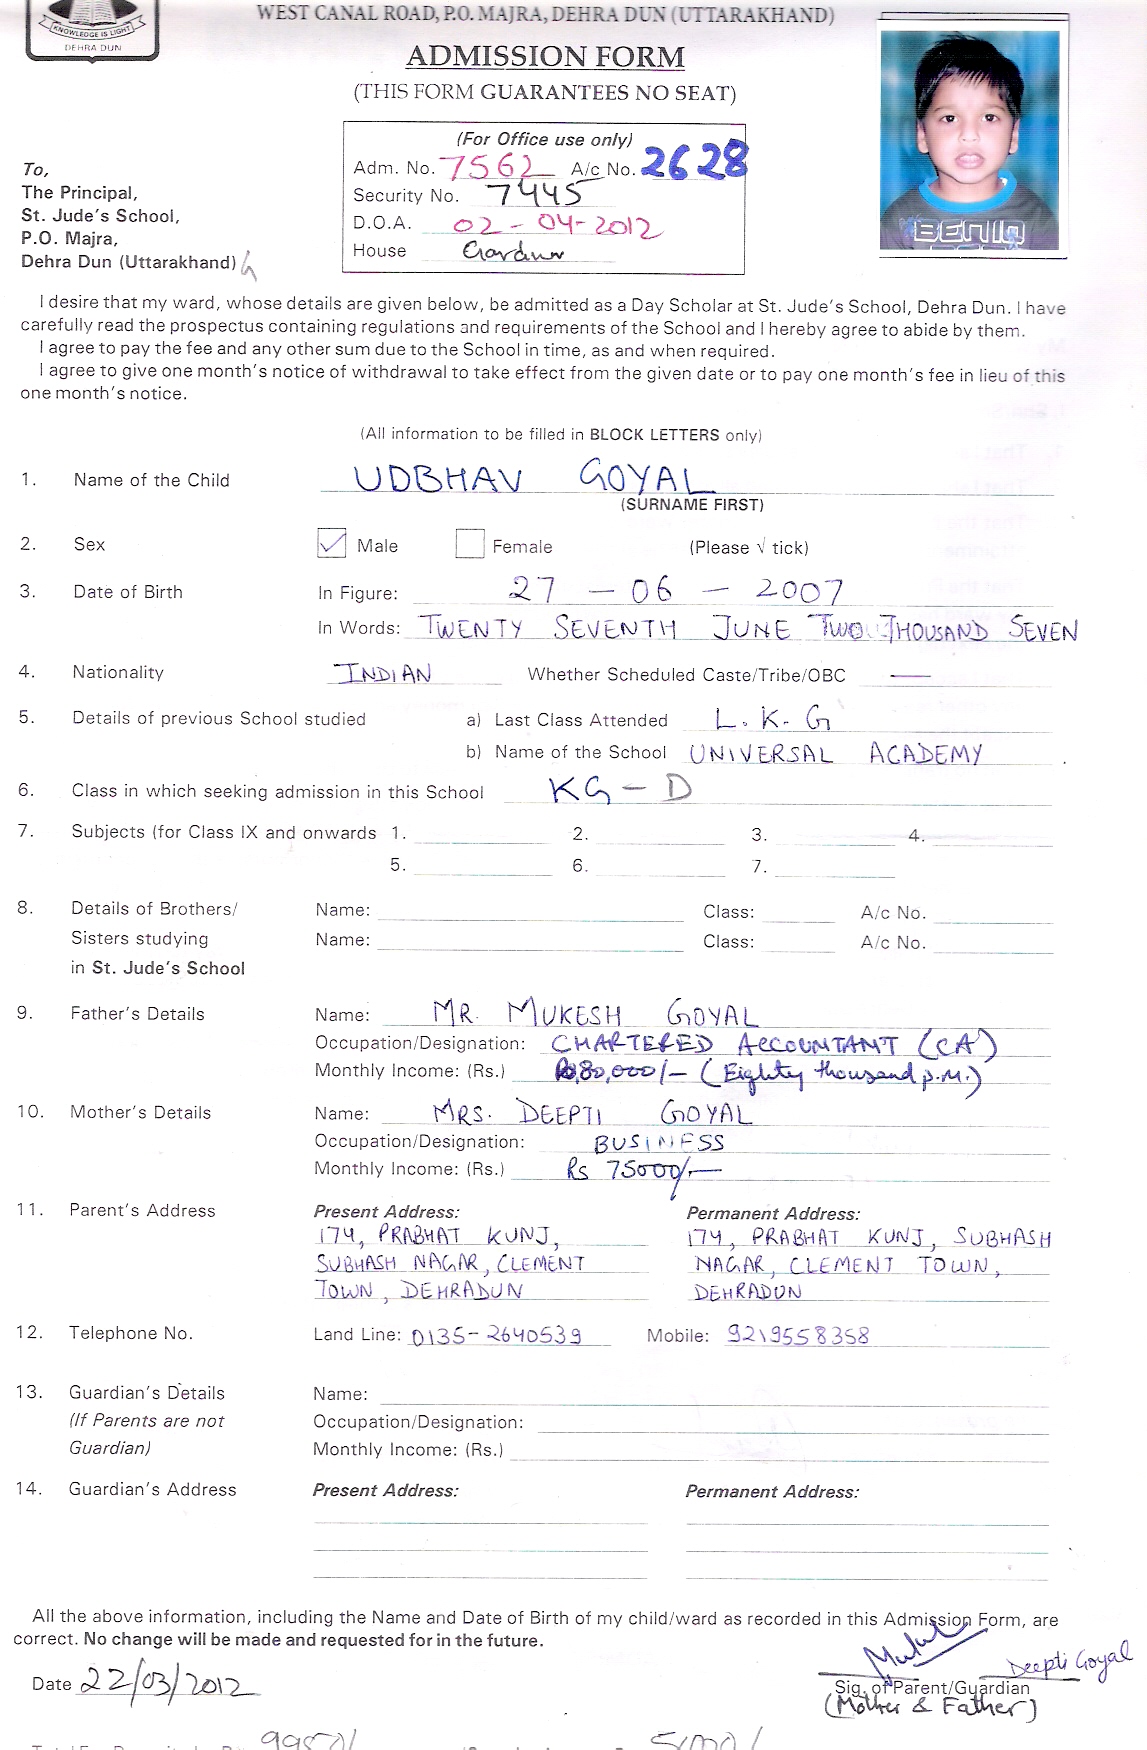 KNOWLEDGE IS LIGHT
DEHRA DUN
WEST CANAL ROAD, P.O. MAJRA, DEHRA DUN (UTTARAKHAND)
ADMISSION FORM
(THIS FORM GUARANTEES NO SEAT)
(For Office use only)
Adm. No. 7562 A/c No. 2628
Security No. 7445
D.O.A. 02-04-2012
House
To,
The Principal,
St. Jude's School,
P.O. Majra,
Dehra Dun (Uttarakhand)
I desire that my ward, whose details are given below, be admitted as a Day Scholar at St. Jude's School, Dehra Dun. I have
carefully read the prospectus containing regulations and requirements of the School and I hereby agree to abide by them.
I agree to pay the fee and any other sum due to the School in time, as and when required.
I agree to give one month's notice of withdrawal to take effect from the given date or to pay one month's fee in lieu of this
one month's notice.
(All information to be filled in BLOCK LETTERS only)
1. Name of the Child UDBHAV GOYAL
(SURNAME FIRST)
2. Sex ✓ Male Female (Please √ tick)
3. Date of Birth In Figure: 27 - 06 - 2007
In Words: TWENTY SEVENTH JUNE TWO THOUSAND SEVEN
4. Nationality INDIAN Whether Scheduled Caste/Tribe/OBC —
5. Details of previous School studied a) Last Class Attended L.K.G
b) Name of the School UNIVERSAL ACADEMY
6. Class in which seeking admission in this School KG - D
7. Subjects (for Class IX and onwards 1. 2. 3. 4.
5. 6. 7.
8. Details of Brothers/ Name: Class: A/c No.
Sisters studying Name: Class: A/c No.
in St. Jude's School
9. Father's Details Name: MR. MUKESH GOYAL
Occupation/Designation: CHARTERED ACCOUNTANT (CA)
Monthly Income: (Rs.) 80,000/- (Eighty thousand p.m.)
10. Mother's Details Name: MRS. DEEPTI GOYAL
Occupation/Designation: BUSINESS
Monthly Income: (Rs.) Rs 75000/-
11. Parent's Address Present Address: Permanent Address:
174, PRABHAT KUNJ, 174, PRABHAT KUNJ, SUBHASH
SUBHASH NAGAR, CLEMENT NAGAR, CLEMENT TOWN,
TOWN, DEHRADUN DEHRADUN
12. Telephone No. Land Line: 0135-2640539 Mobile: 9219558358
13. Guardian's Details Name:
(If Parents are not Occupation/Designation:
Guardian) Monthly Income: (Rs.)
14. Guardian's Address Present Address: Permanent Address:
All the above information, including the Name and Date of Birth of my child/ward as recorded in this Admission Form, are
correct. No change will be made and requested for in the future.
Deepti Goyal
Date 22/03/2012 Sig. of Parent/Guardian
(Mother & Father)
BENIQ